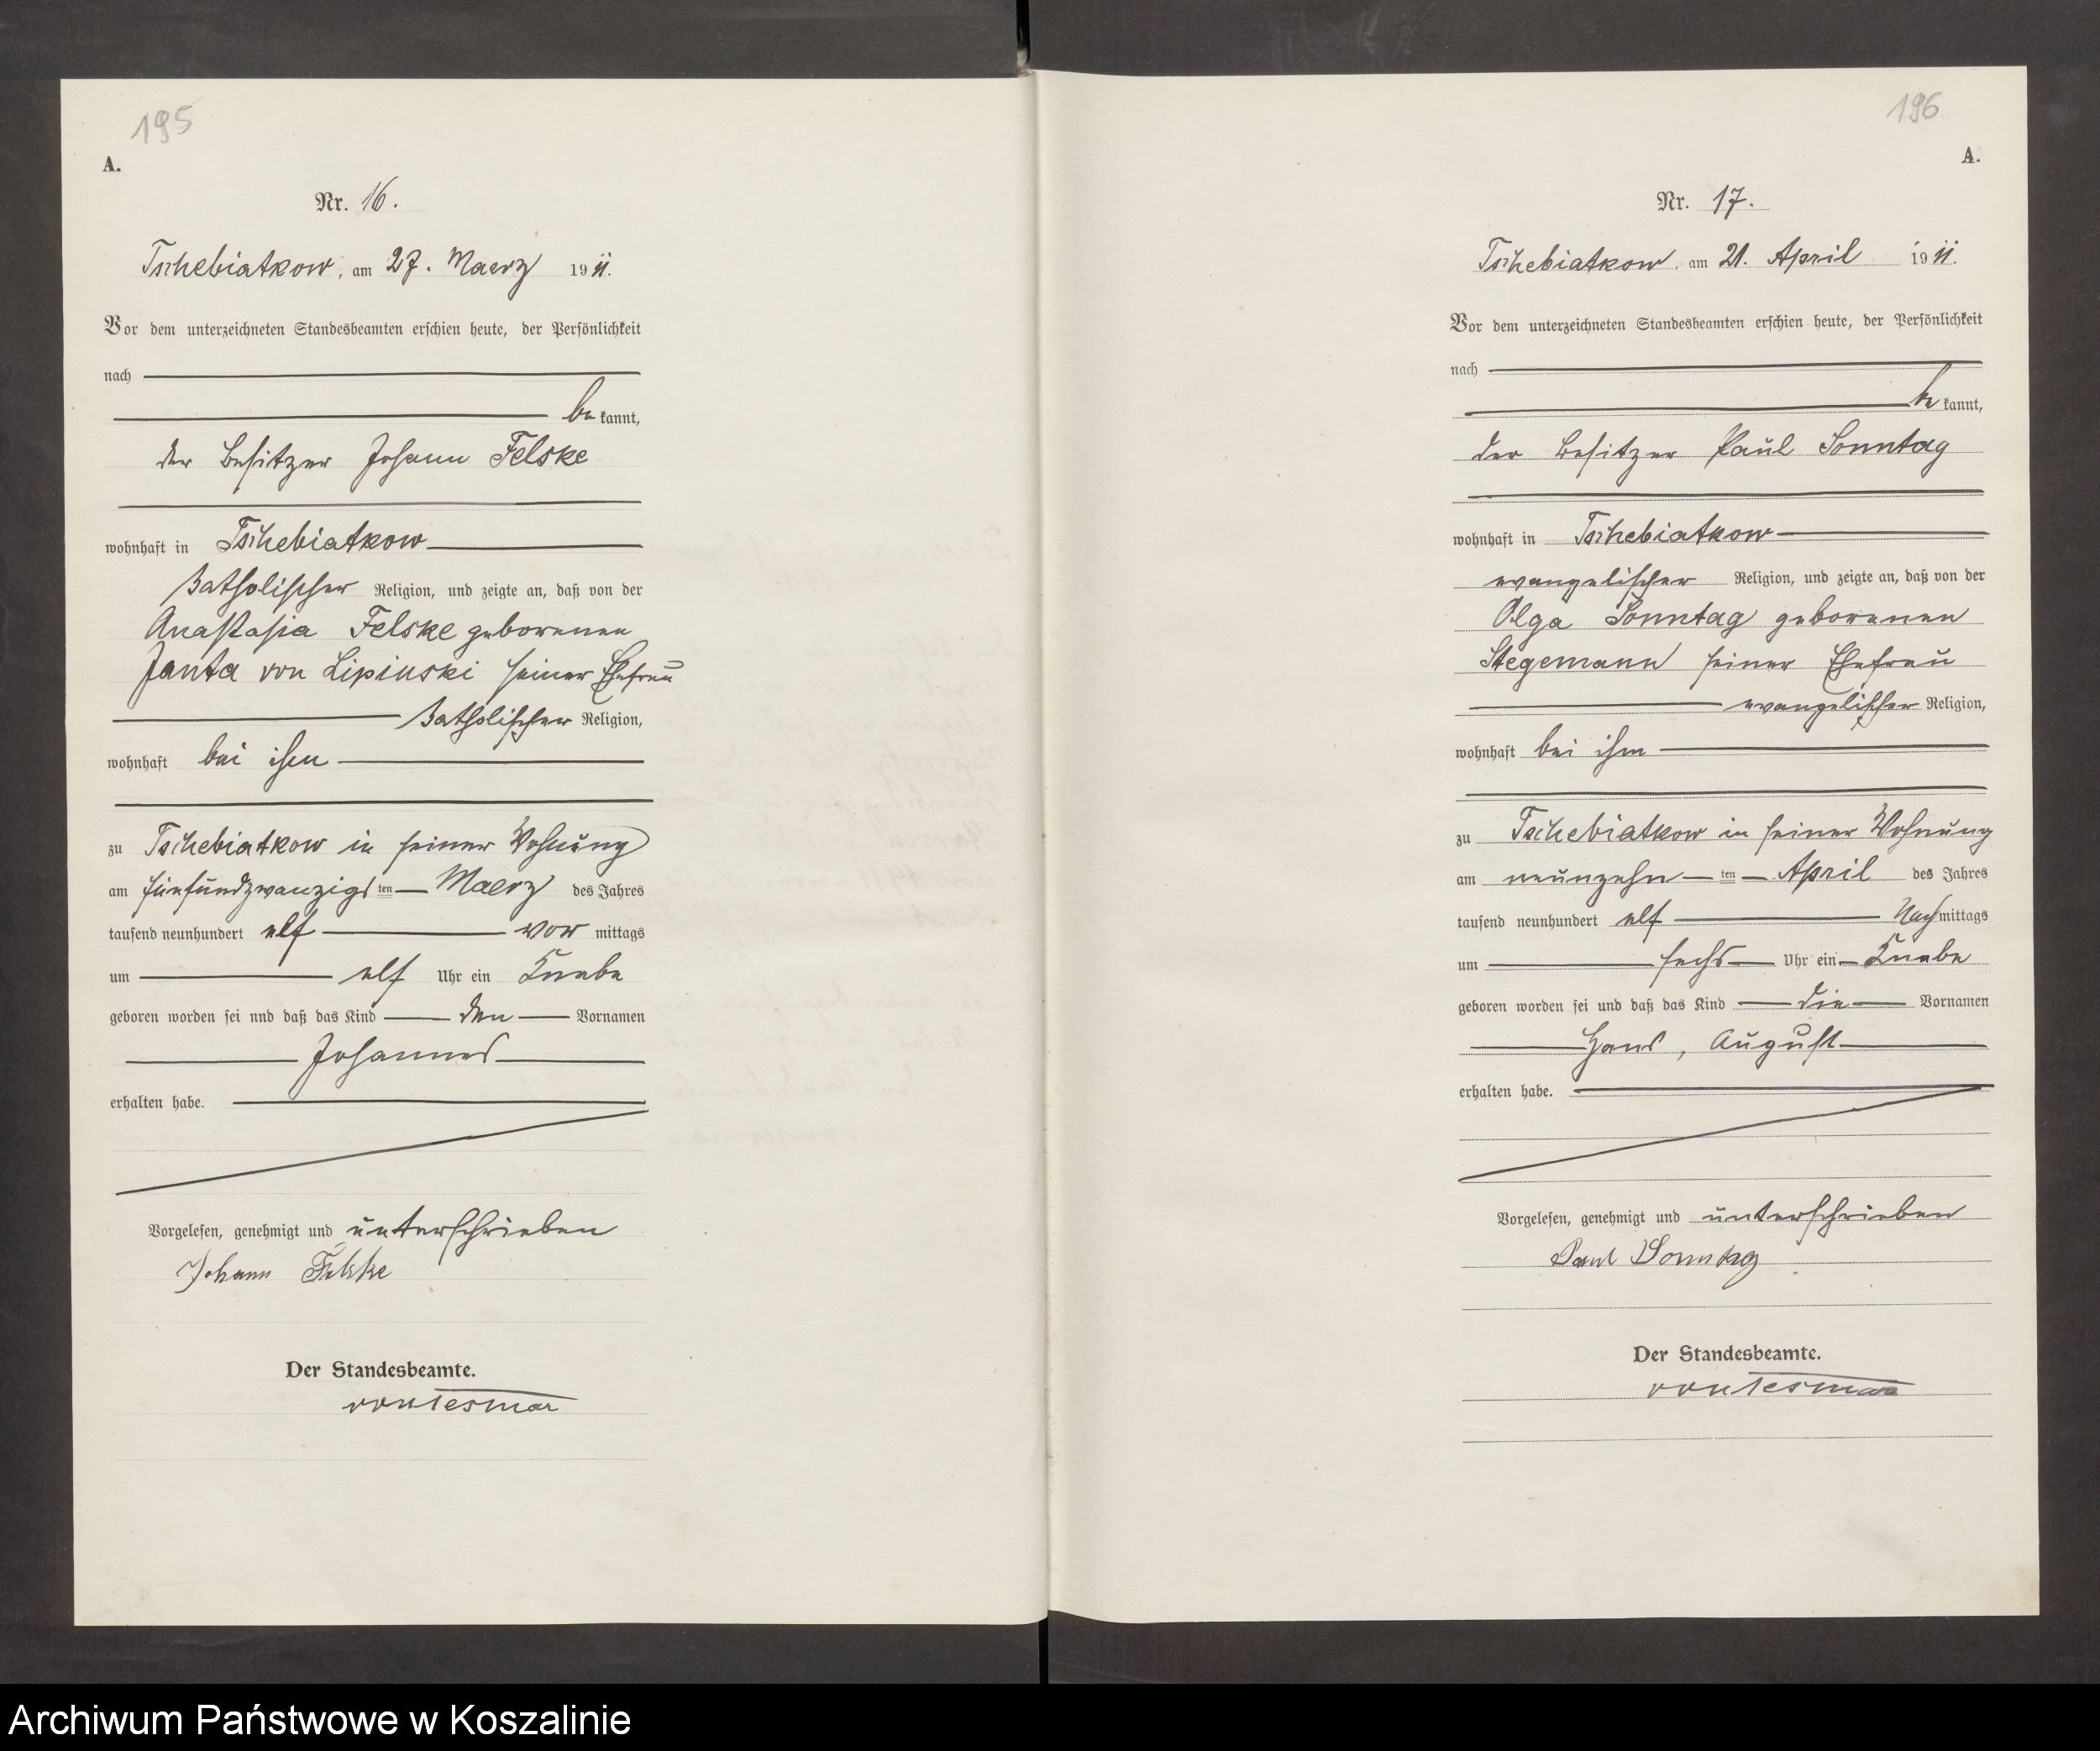 195
A.
Nr. 16.
Tschebiatkow, am 27. Maerz 1911.
Vor dem unterzeichneten Standesbeamten erschien heute, der Persönlichkeit
nach
be kannt,
der Besitzer Johann Felske
wohnhaft in Tschebiatkow
katholischer Religion, und zeigte an, daß von der
Anastasia Felske geborenen
Janta von Lipinski seiner Ehefrau
katholischer Religion,
wohnhaft bei ihm
zu Tschebiatkow in seiner Wohnung
am fünfundzwanzigsten Maerz des Jahres
tausend neunhundert elf vor mittags
um elf Uhr ein Knabe
geboren worden sei und daß das Kind den Vornamen
Johannes
erhalten habe.
Vorgelesen, genehmigt und unterschrieben
Johann Felske
Der Standesbeamte.
von Tesmar
196
A.
Nr. 17.
Tschebiatkow, am 21. April 1911.
Vor dem unterzeichneten Standesbeamten erschien heute, der Persönlichkeit
nach
be kannt,
der Besitzer Paul Sonntag
wohnhaft in Tschebiatkow
evangelischer Religion, und zeigte an, daß von der
Olga Sonntag geborenen
Stegemann seiner Ehefrau
evangelischer Religion,
wohnhaft bei ihm
zu Tschebiatkow in seiner Wohnung
am neunzehn ten April des Jahres
tausend neunhundert elf Nachmittags
um sechs Uhr ein Knabe
geboren worden sei und daß das Kind die Vornamen
Hans, August
erhalten habe.
Vorgelesen, genehmigt und unterschrieben
Paul Sonntag
Der Standesbeamte.
von Tesmar
Archiwum Państwowe w Koszalinie